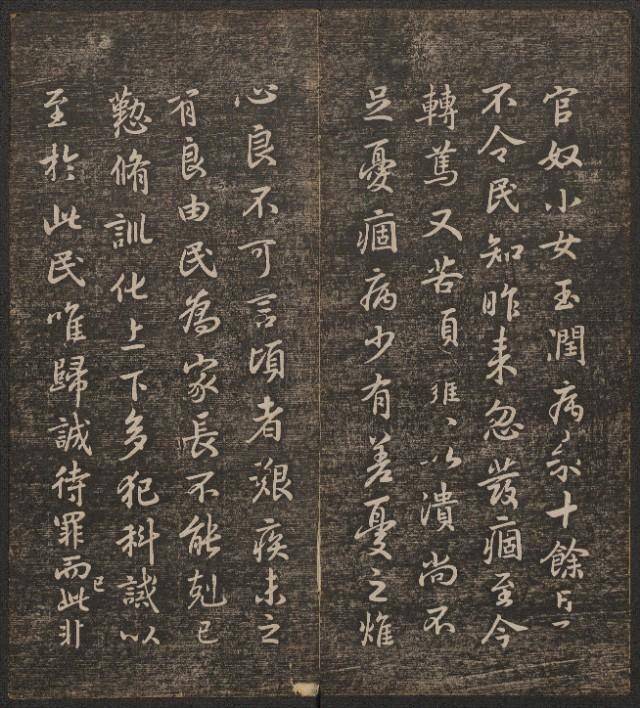 官奴小女玉潤病來十餘日
不令民知昨來忽發痼至今
轉篤又苦頭癰、以潰尚不
足憂痼病少有差憂之燋
心良不可言頃者艱疾未之
有良由民為家長不能剋己
懃脩訓化上下多犯科誡以
至於此民唯歸誠待罪而已此非